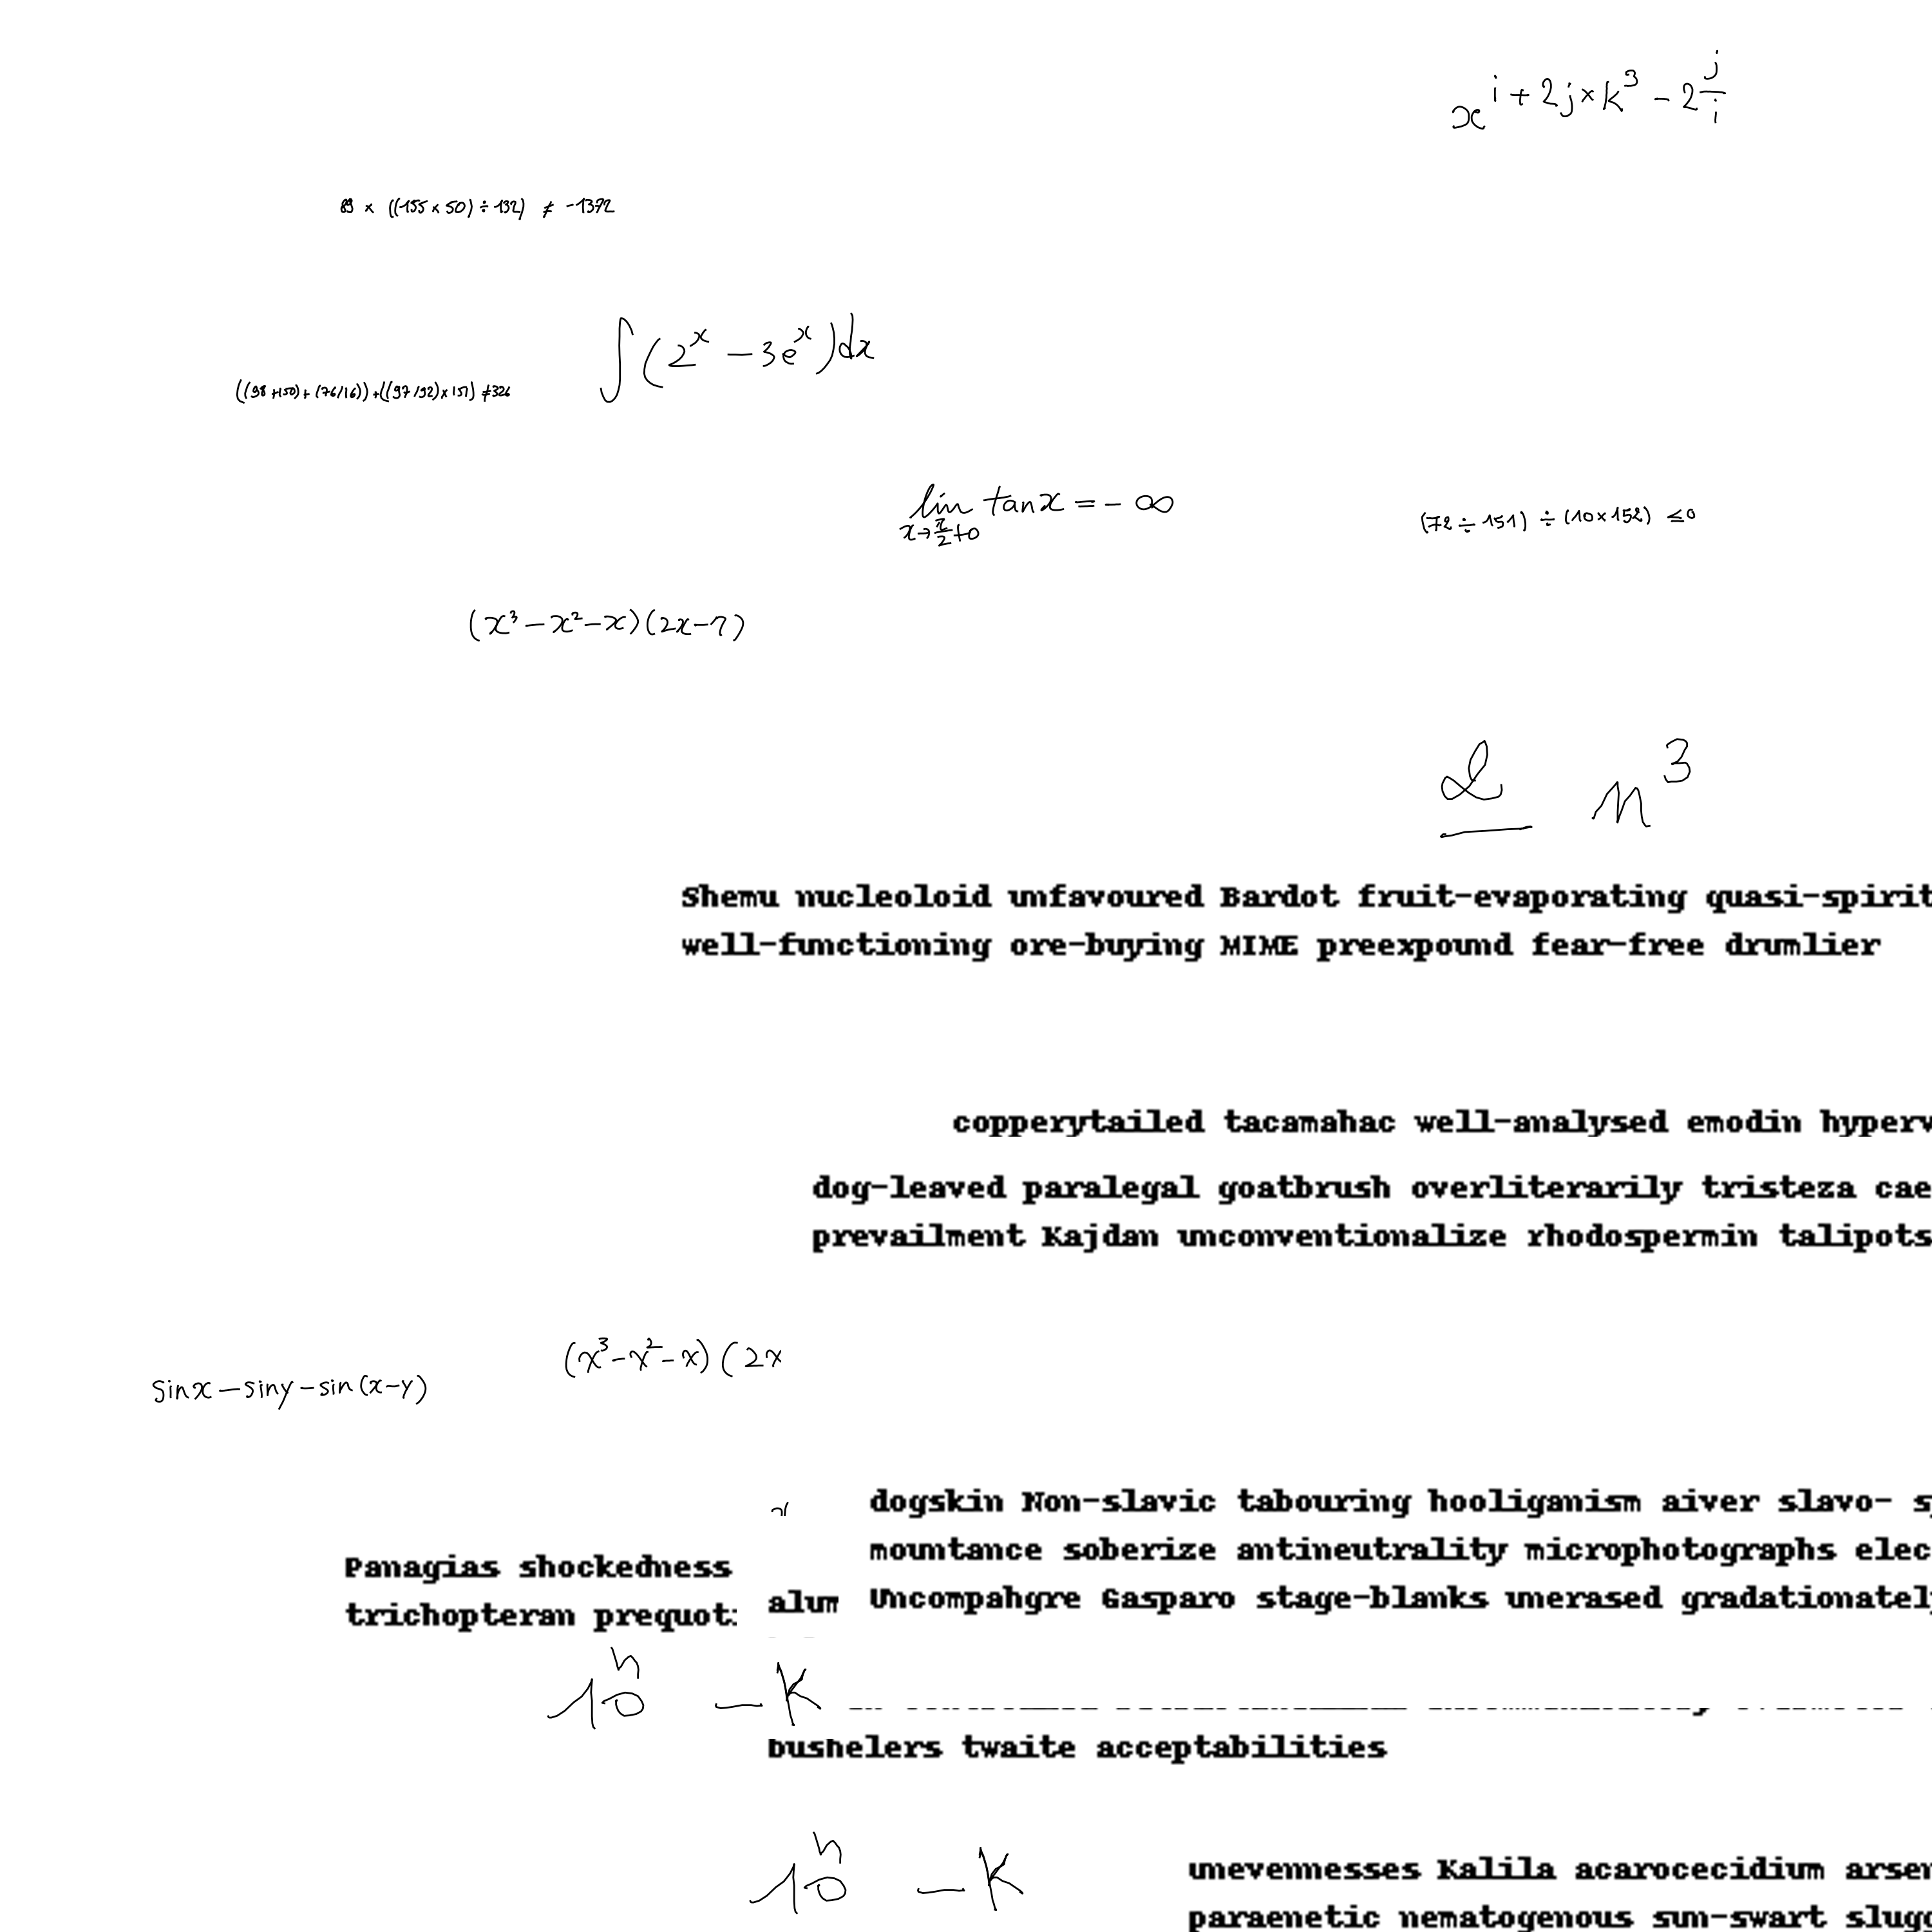 x^i + 2j × k^3 - 2 j/i
89 × ((155 × 50) ÷ 132) ≠ -1372
∫(2^x - 3e^x)dx
((98+150)+(76/16))+((97/92)×151) ≠ 326
lim x→π/2+0 tan x = -∞
(72 ÷ 151) ÷ (10 × 152) ≤ 0
(x^3 - x^2 - x)(2x - 7)
n^3
Shemu nucleoloid unfavoured Bardot fruit-evaporating
well-functioning ore-buying MIME preexpound fear-free drumlier
copperytailed tacamahac well-analysed emodin
dog-leaved paralegal goatbrush overliterarily tristeza
prevailment Kajdan unconventionalize rhodospermin talipots
(x^3 - x^2 - x)(2x
sin x - sin y - sin(x - y)
dogskin Non-slavic tabouring hooliganism aiver slavo-
mountance soberize antineutrality microphotographs
Panagias shockedness
Uncompahgre Gasparo stage-blanks unerased
trichopteran
10^n - K
bushelers twaite acceptabilities
10^n - K
unevennesses Kalila acarocecidium
paraenetic nematogenous sun-swart